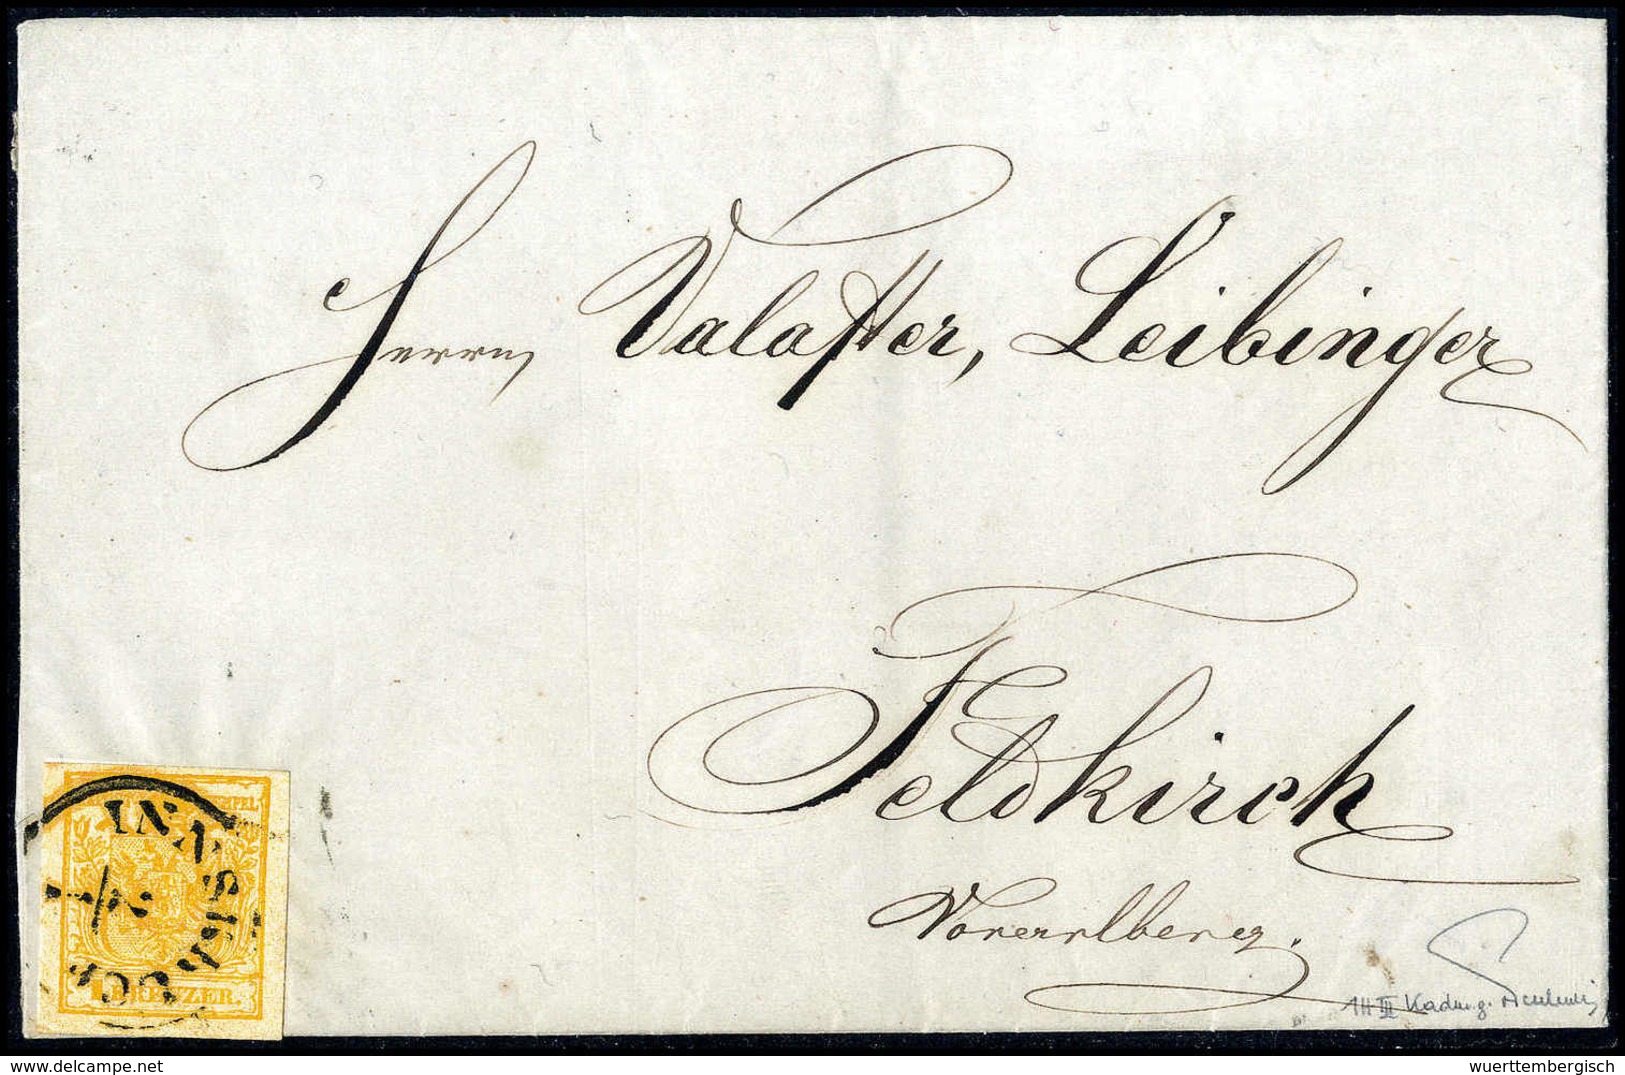 Herrn Valaster, Leibinger
Feldkirch
Vorarlberg.
INNSBRUCK
1 KREUZER.
1H III
wuerttembergisch
www.delcampe.net